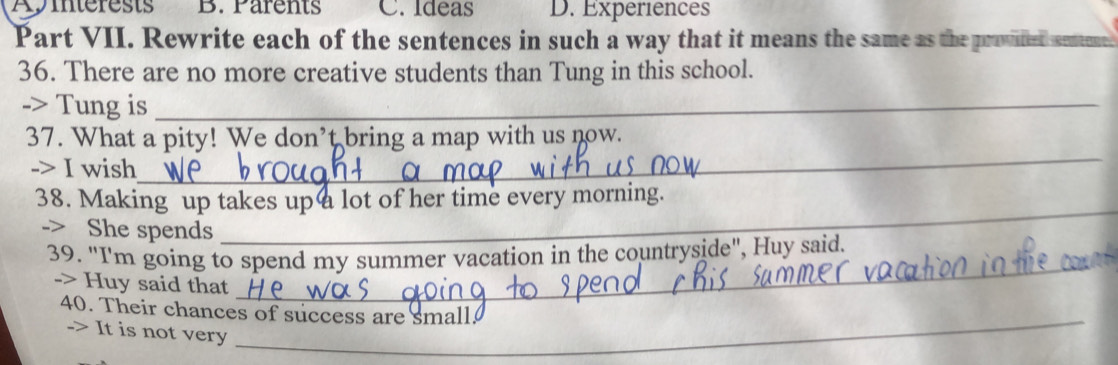 A. Interests B. Parents C. Ideas D. Experiences
Part VII. Rewrite each of the sentences in such a way that it means the same as the provided sentence
36. There are no more creative students than Tung in this school.
-> Tung is
37. What a pity! We don't bring a map with us now.
-> I wish we brought a map with us now
38. Making up takes up a lot of her time every morning.
-> She spends
39. "I'm going to spend my summer vacation in the countryside", Huy said.
-> Huy said that He was going to spend his summer vacation in the
40. Their chances of success are small.
-> It is not very